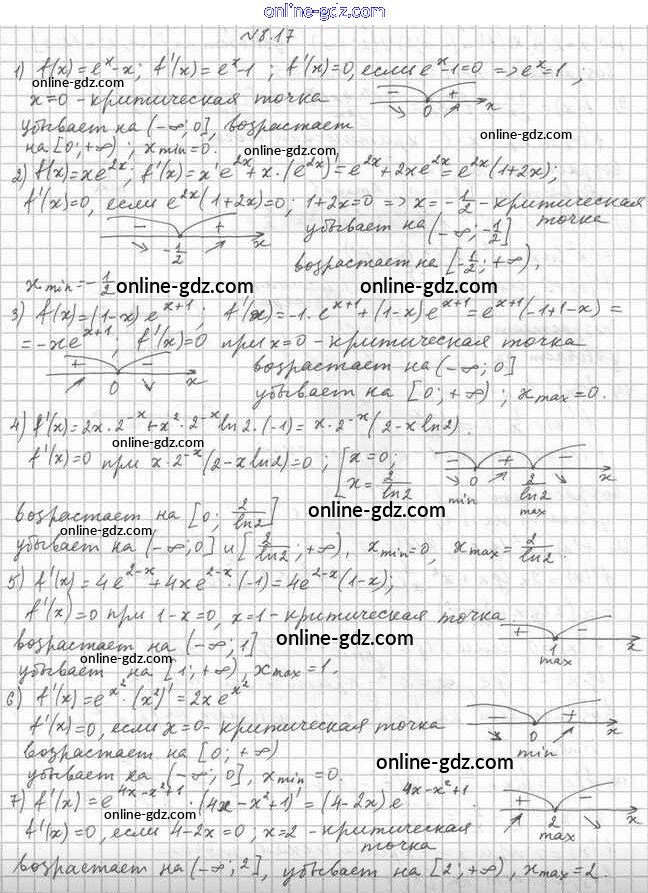 online-gdz.com
№8.17
1) f(x)=e^x-x; f'(x)=e^x-1; f'(x)=0, если e^x-1=0 => e^x=1;
online-gdz.com
x=0 - критическая точка
- + 0 x
убывает на (-∞;0], возрастает
online-gdz.com
на [0;+∞); x min=0.
online-gdz.com
2) f(x)=xe^{2x}; f'(x)=x'e^{2x}+x·(e^{2x})'=e^{2x}+2xe^{2x}=e^{2x}(1+2x);
f'(x)=0, если e^{2x}(1+2x)=0; 1+2x=0 => x=-1/2 - критическая
точка
online-gdz.com
- + -1/2 x
убывает на (-∞;-1/2]
возрастает на [-1/2;+∞),
x min=-1/2
online-gdz.com
online-gdz.com
3) f(x)=(1-x)e^{x+1}; f'(x)=-1·e^{x+1}+(1-x)e^{x+1}=e^{x+1}(-1+1-x)=
=-xe^{x+1}; f'(x)=0 при x=0 - критическая точка
+ - 0 x
возрастает на (-∞;0]
убывает на [0;+∞); x max=0.
online-gdz.com
online-gdz.com
4) f'(x)=2x·2^{-x}+x²·2^{-x}ln2·(-1)=x·2^{-x}(2-xln2).
online-gdz.com
f'(x)=0 при x·2^{-x}(2-xln2)=0; [x=0; x=2/ln2
- + - 0 2/ln2 x
min max
возрастает на [0; 2/ln2]
online-gdz.com
online-gdz.com
убывает на (-∞;0] и [2/ln2;+∞), x min=0, x max=2/ln2.
5) f'(x)=4e^{2-x}+4xe^{2-x}·(-1)=4e^{2-x}(1-x);
online-gdz.com
f'(x)=0 при 1-x=0, x=1 - критическая точка.
+ - 1 x
max
возрастает на (-∞;1]
online-gdz.com
online-gdz.com
убывает на [1;+∞), x max=1.
6) f'(x)=e^{x²}·(x²)'=2xe^{x²}
f'(x)=0, если x=0 - критическая точка
- + 0 x
min
возрастает на [0;+∞)
online-gdz.com
убывает на (-∞;0], x min=0.
7) f'(x)=e^{4x-x²+1}·(4x-x²+1)'=(4-2x)e^{4x-x²+1}.
online-gdz.com
f'(x)=0, если 4-2x=0; x=2 - критическая
точка
+ - 2 x
max
online-gdz.com
возрастает на (-∞;2], убывает на [2;+∞), x max=2.
online-gdz.com